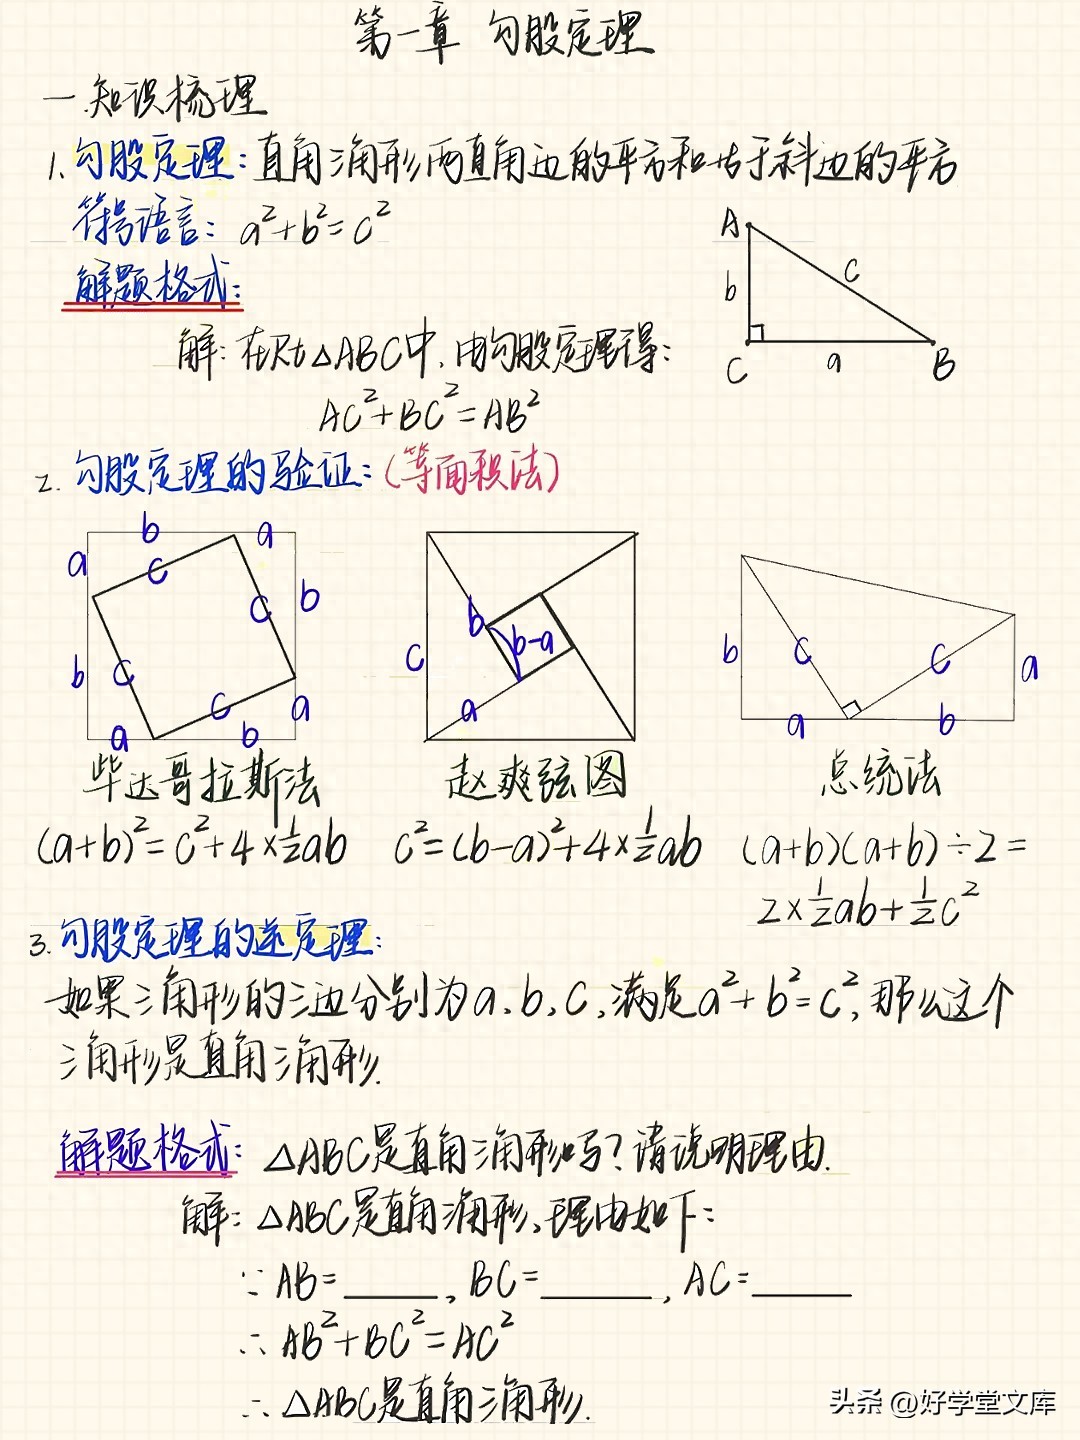 第一章 勾股定理
一.知识梳理
1.勾股定理:直角三角形两直角边的平方和等于斜边的平方
符号语言: a²+b²=c²
A
b
c
C
a
B
解题格式:
解:在Rt△ABC中,由勾股定理得:
AC²+BC²=AB²
2.勾股定理的验证:(等面积法)
b a
a c
c b
b c
c a
a b
b
c b-a
a
b c c a
a b
毕达哥拉斯法 赵爽弦图 总统法
(a+b)²=c²+4×½ab c²=(b-a)²+4×½ab (a+b)(a+b)÷2=
2×½ab+½c²
3.勾股定理的逆定理:
如果三角形的三边分别为a,b,c,满足a²+b²=c²,那么这个
三角形是直角三角形.
解题格式: △ABC是直角三角形吗?请说明理由.
解:△ABC是直角三角形,理由如下:
∵AB=______,BC=______,AC=______
∴AB²+BC²=AC²
∴△ABC是直角三角形.
头条 @好学堂文库